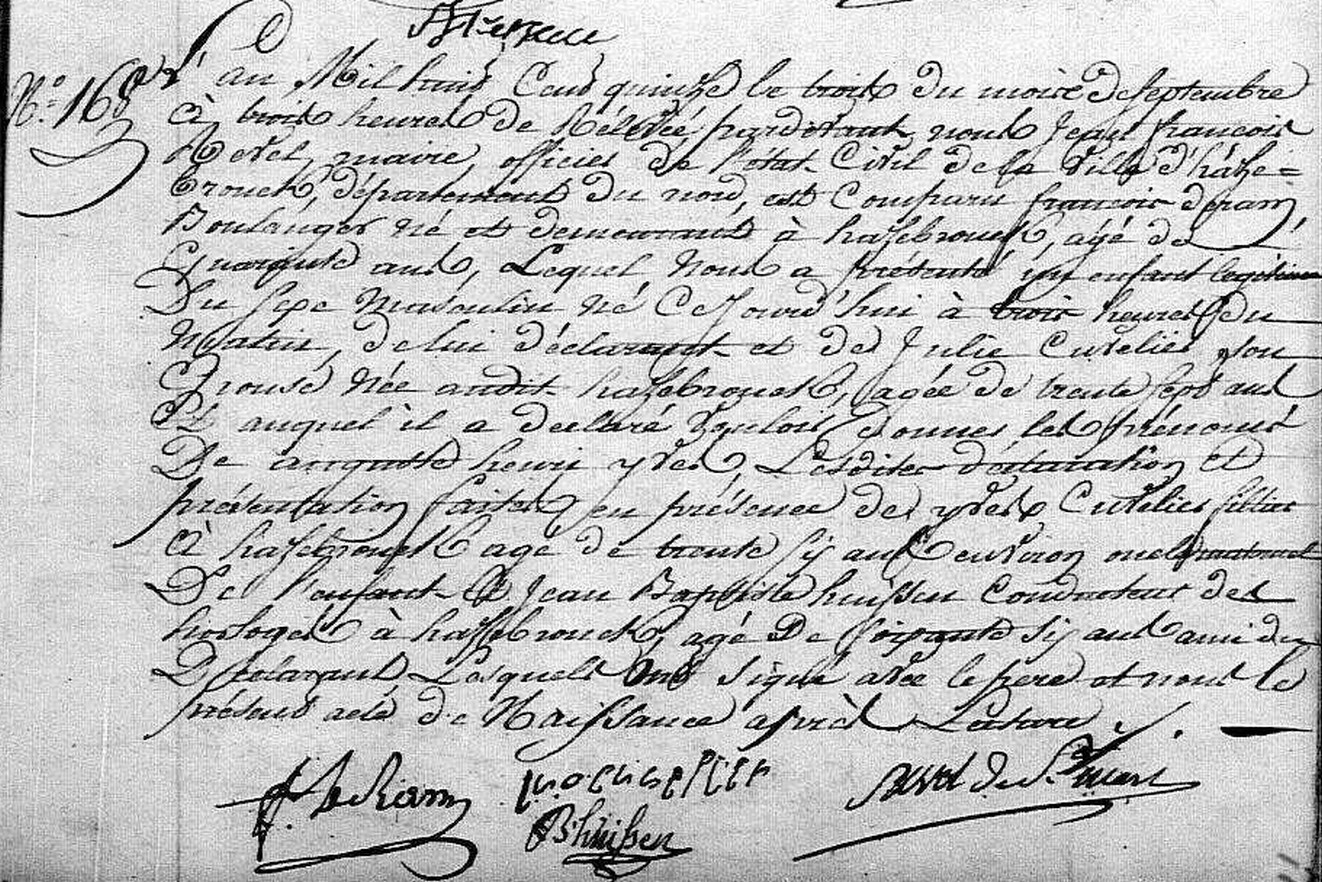 N.° 168
L'an Mil huit Cent quinze le trois du mois de Septembre
à trois heures de Rélevée pardevant nous Jean françois
Revel, maire, officier de l'état Civil de la Ville d'háze=
brouck, département du nord, est Comparu françois
Boulanger né et demeurant à hazebrouck, agé de
Quarante ans, Lequel Nous a présenté un enfant legitime
Du sexe Masculin né Cejourd'hui à trois heures du
Matin, de lui déclarant et de Julie Cuvelier son
Epouse née audit hazebrouck, agée de trente sept ans
Et auquel il a declaré Vouloir donner les prénoms
De auguste henri yves, Lesdites déclaration et
présentation faites en présence de yves Cuvelier filtier
à hazebrouck agé de trente six ans environ oncle maternel
De l'enfant Et Jean Baptiste huissen Conducteur des
horloges à hazebrouck, agé De soixante six ans ami du
Déclarant Lesquels Ont signé avec le pere et nous le
présent acte de Naissance après Lecture ./.
B huissen